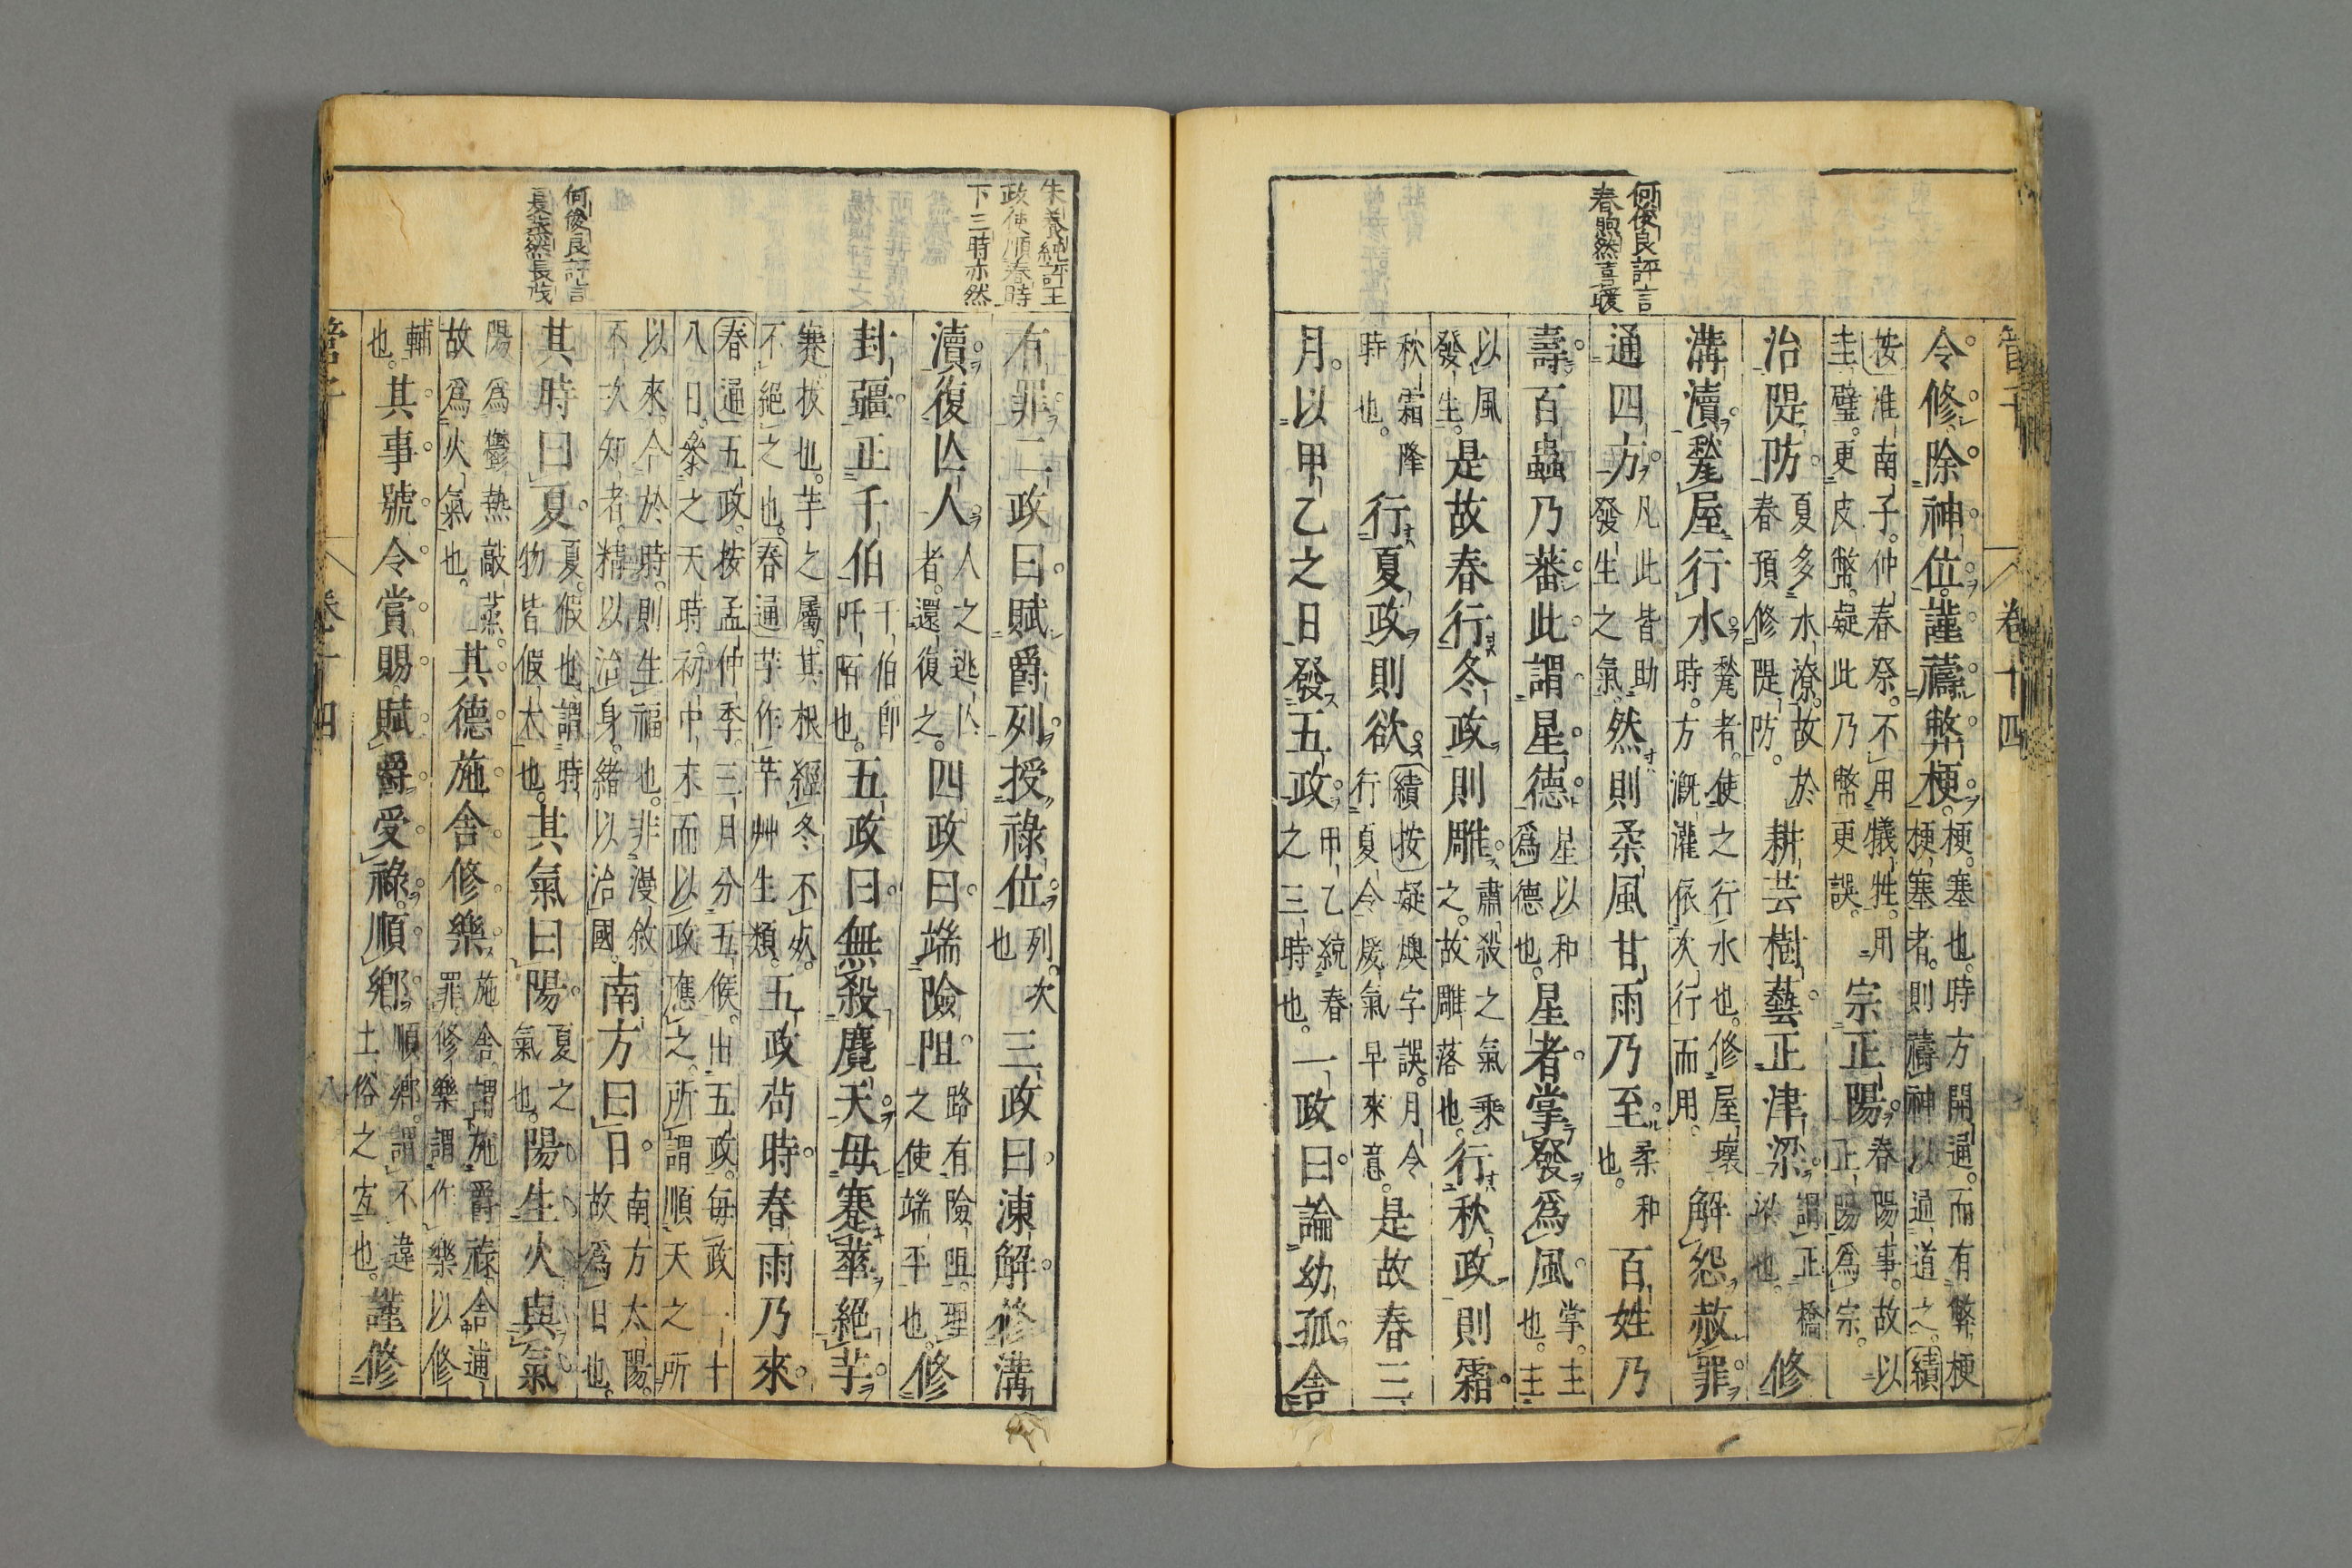 管子
卷十四
何俊良評言
春煦然喜煖
令修除神位謹禱弊梗梗塞也時方開通而有弊梗
梗塞者則禱神以通道之續
按淮南子仲春祭不用犧牲用
圭璧更皮幣疑此乃幣更誤宗正陽春陽事故以
正陽爲宗
治隄防夏多水潦故於
春預修隄防耕芸樹藝正津梁謂正橋
梁也修
溝瀆甃屋行水甃者使之行水也修屋壞
時方溉灌依次行而用解怨赦罪
通四方凡此皆助
發生之氣然則柔風甘雨乃至柔和
也百姓乃
壽百蟲乃蕃此謂星德星以和
爲德也星者掌發爲風掌主
也主
以風
發生是故春行冬政則雕肅殺之氣乘
之故雕落也行秋政則霜
秋霜降
時也行夏政則欲續按疑燠字誤月令
行夏令煖氣早來意是故春三
月以甲乙之日發五政甲乙統春
之三時也一政曰論幼孤舍
朱養純評王
政使順春時
下三時亦然
有罪二政曰賦爵列授祿位列次
也三政曰凍解修溝
瀆復亾人人之逃亾
者還復之四政曰端險阻路有險阻理
之使端平也修
封疆正千伯千伯卽
阡陌也五政曰無殺麑夭毋蹇華絕芋
蹇拔也芋之屬其根經冬不死
不絕之也春通芋作芊艸生類五政苟時春雨乃來
春通五政按孟仲季三月分五候出五政每政一十
八日叅之天時初中末而以政應之所謂順天之所
以來今於時則生福也非漫敘
不次知者精以治身緒以治國南方曰日南方太陽
故爲日也
何俊良評言
夏養然長茂
其時曰夏夏假也謂時
物皆假大也其氣曰陽夏之
氣也陽生火與氣
陽爲鬱熱敲蒸
故爲火氣也其德施舍修樂施舍謂施爵祿舍逋
罪修樂謂作樂以修
輔
也其事號令賞賜賦爵受祿順鄉順鄉謂不違
土俗之宐也謹修
管子
卷十四
八